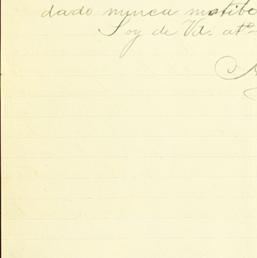 dado nunca motibo
Soy de Vd. atº